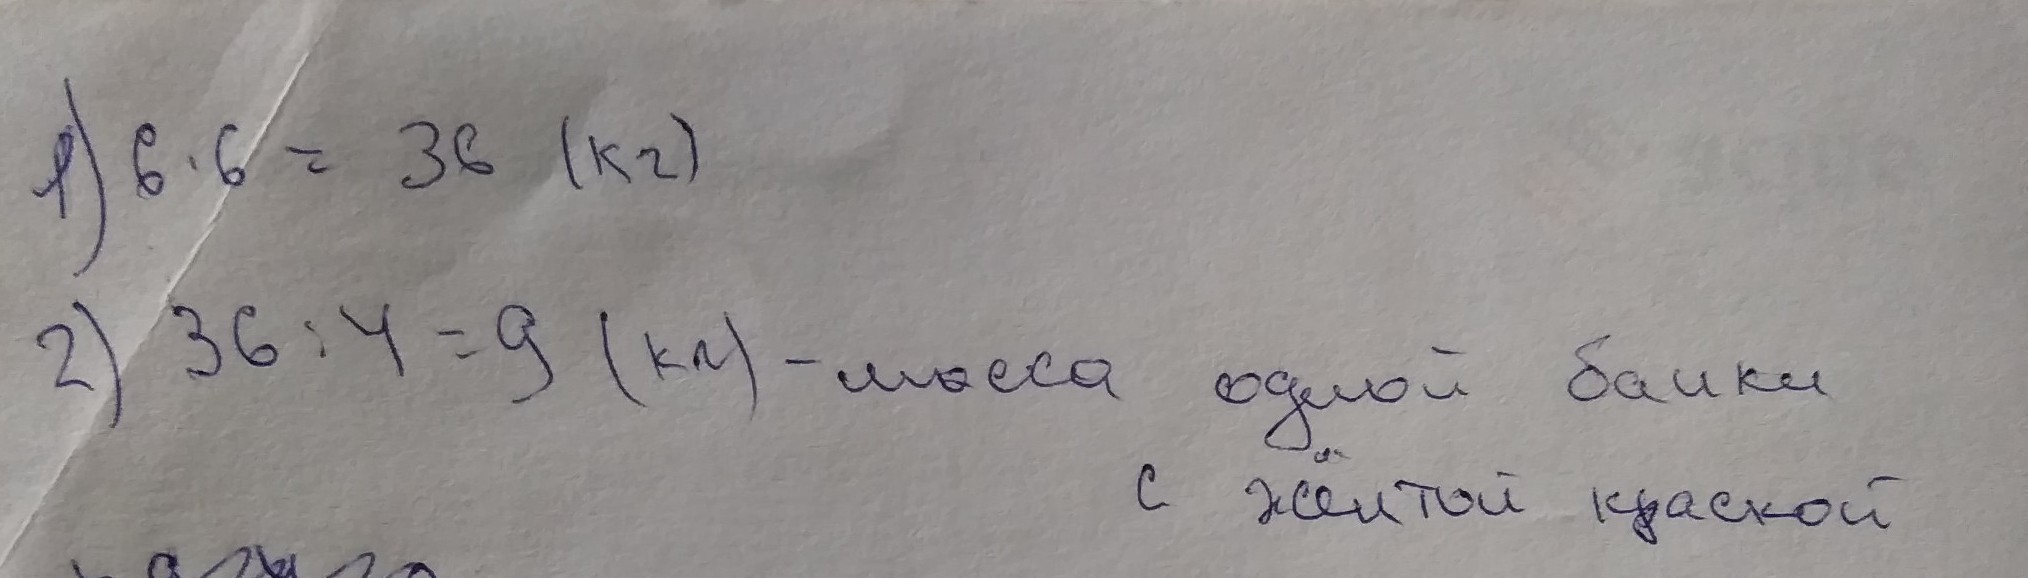 1) 6·6 = 36 (кг)
2) 36:4=9 (кг) - масса одной банки
с жёлтой краской